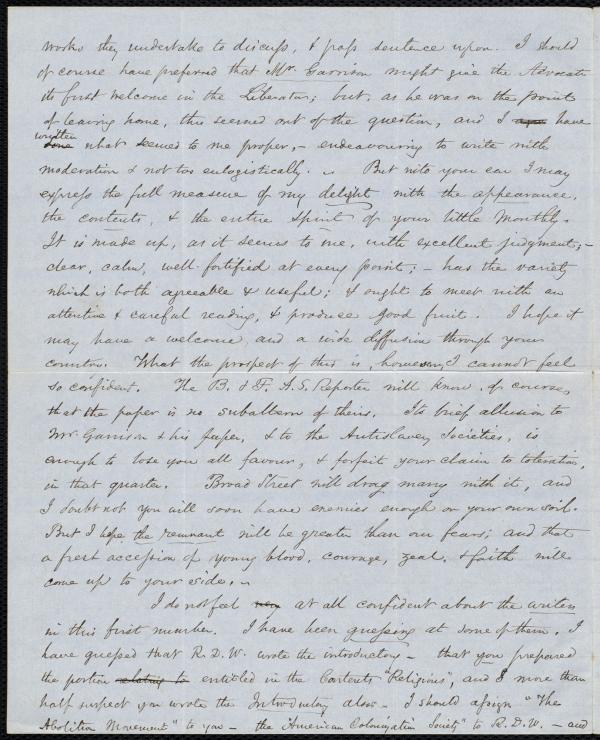 works they undertake to discuss, & pass sentence upon. I should
of course have preferred that Mr. Garrison might give the Advocate
its first welcome in the Liberator; but, as he was on the point
of leaving home, this seemed out of the question, and I have
written what seemed to me proper, – endeavouring to write with
moderation & not too eulogistically. – But into your ear I may
express the full measure of my delight with the appearance,
the contents, & the entire spirit of your little Monthly.
It is made up, as it seems to me, with excellent judgment; –
clear, calm, well-fortified at every point; – has the variety
which is both agreeable & useful; & ought to meet with an
attentive & careful reading, & produce good fruit. I hope it
may have a welcome, and a wide diffusion through your
country. What the prospect of this is, however, I cannot feel
so confident. The B. & F. A. S. Reporter will know, of course,
that the paper is no subaltern of theirs. Its brief allusion to
Mr. Garrison & his paper, & to the Antislavery Societies, is
enough to lose you all favour, & forfeit your claim to toleration,
in that quarter. Broad Street will drag many with it, and
I doubt not you will soon have enemies enough on your own soil.
But I hope the remnant will be greater than our fears; and that
a fresh accession of young blood, courage, zeal, & faith will
come up to your side. –
I do not feel at all confident about the writers
in this first number. I have been guessing at some of them. I
have guessed that R. D. W. wrote the introductory – that you prepared
the portion entitled in the Contents "Religious", and I more than
half suspect you wrote the Introductory also. – I should assign "The
Abolition Movement" to you – the "American Colonization Society" to R. D. W. – and